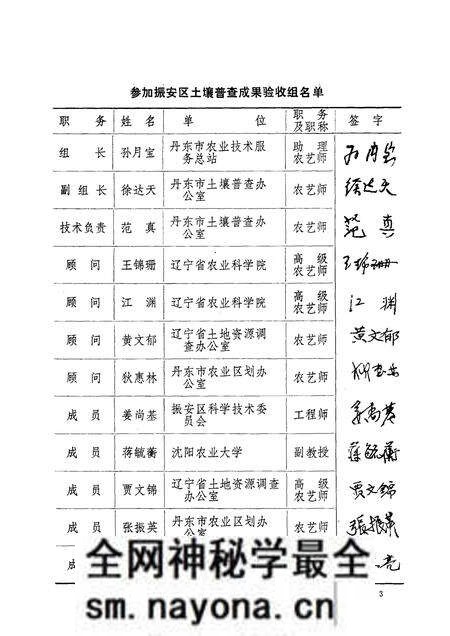 参加振安区土壤普查成果验收组名单
职 务 姓 名 单 位 职 务及职称 签 字
组 长 孙月宝 丹东市农业技术服务总站 助 理农艺师 孙月宝
副 组 长 徐达天 丹东市土壤普查办公室 农艺师 徐达天
技术负责 范 真 丹东市土壤普查办公室 农艺师 范 真
顾 问 王锦珊 辽宁省农业科学院 高 级农艺师 王锦珊
顾 问 江 渊 辽宁省农业科学院 高 级农艺师 江 渊
顾 问 黄文郁 辽宁省土地资源调查办公室 农艺师 黄文郁
顾 问 狄惠林 丹东市农业区划办公室 农艺师
成 员 姜尚基 振安区科学技术委员会 工程师 姜尚基
成 员 蒋毓衡 沈阳农业大学 副教授 蒋毓衡
成 员 贾文锦 辽宁省土地资源调查办公室 高 级农艺师 贾文锦
成 员 张振英 丹东市农业区划办公室 农艺师 張振英
亮
全网神秘学最全
sm.nayona.cn
3